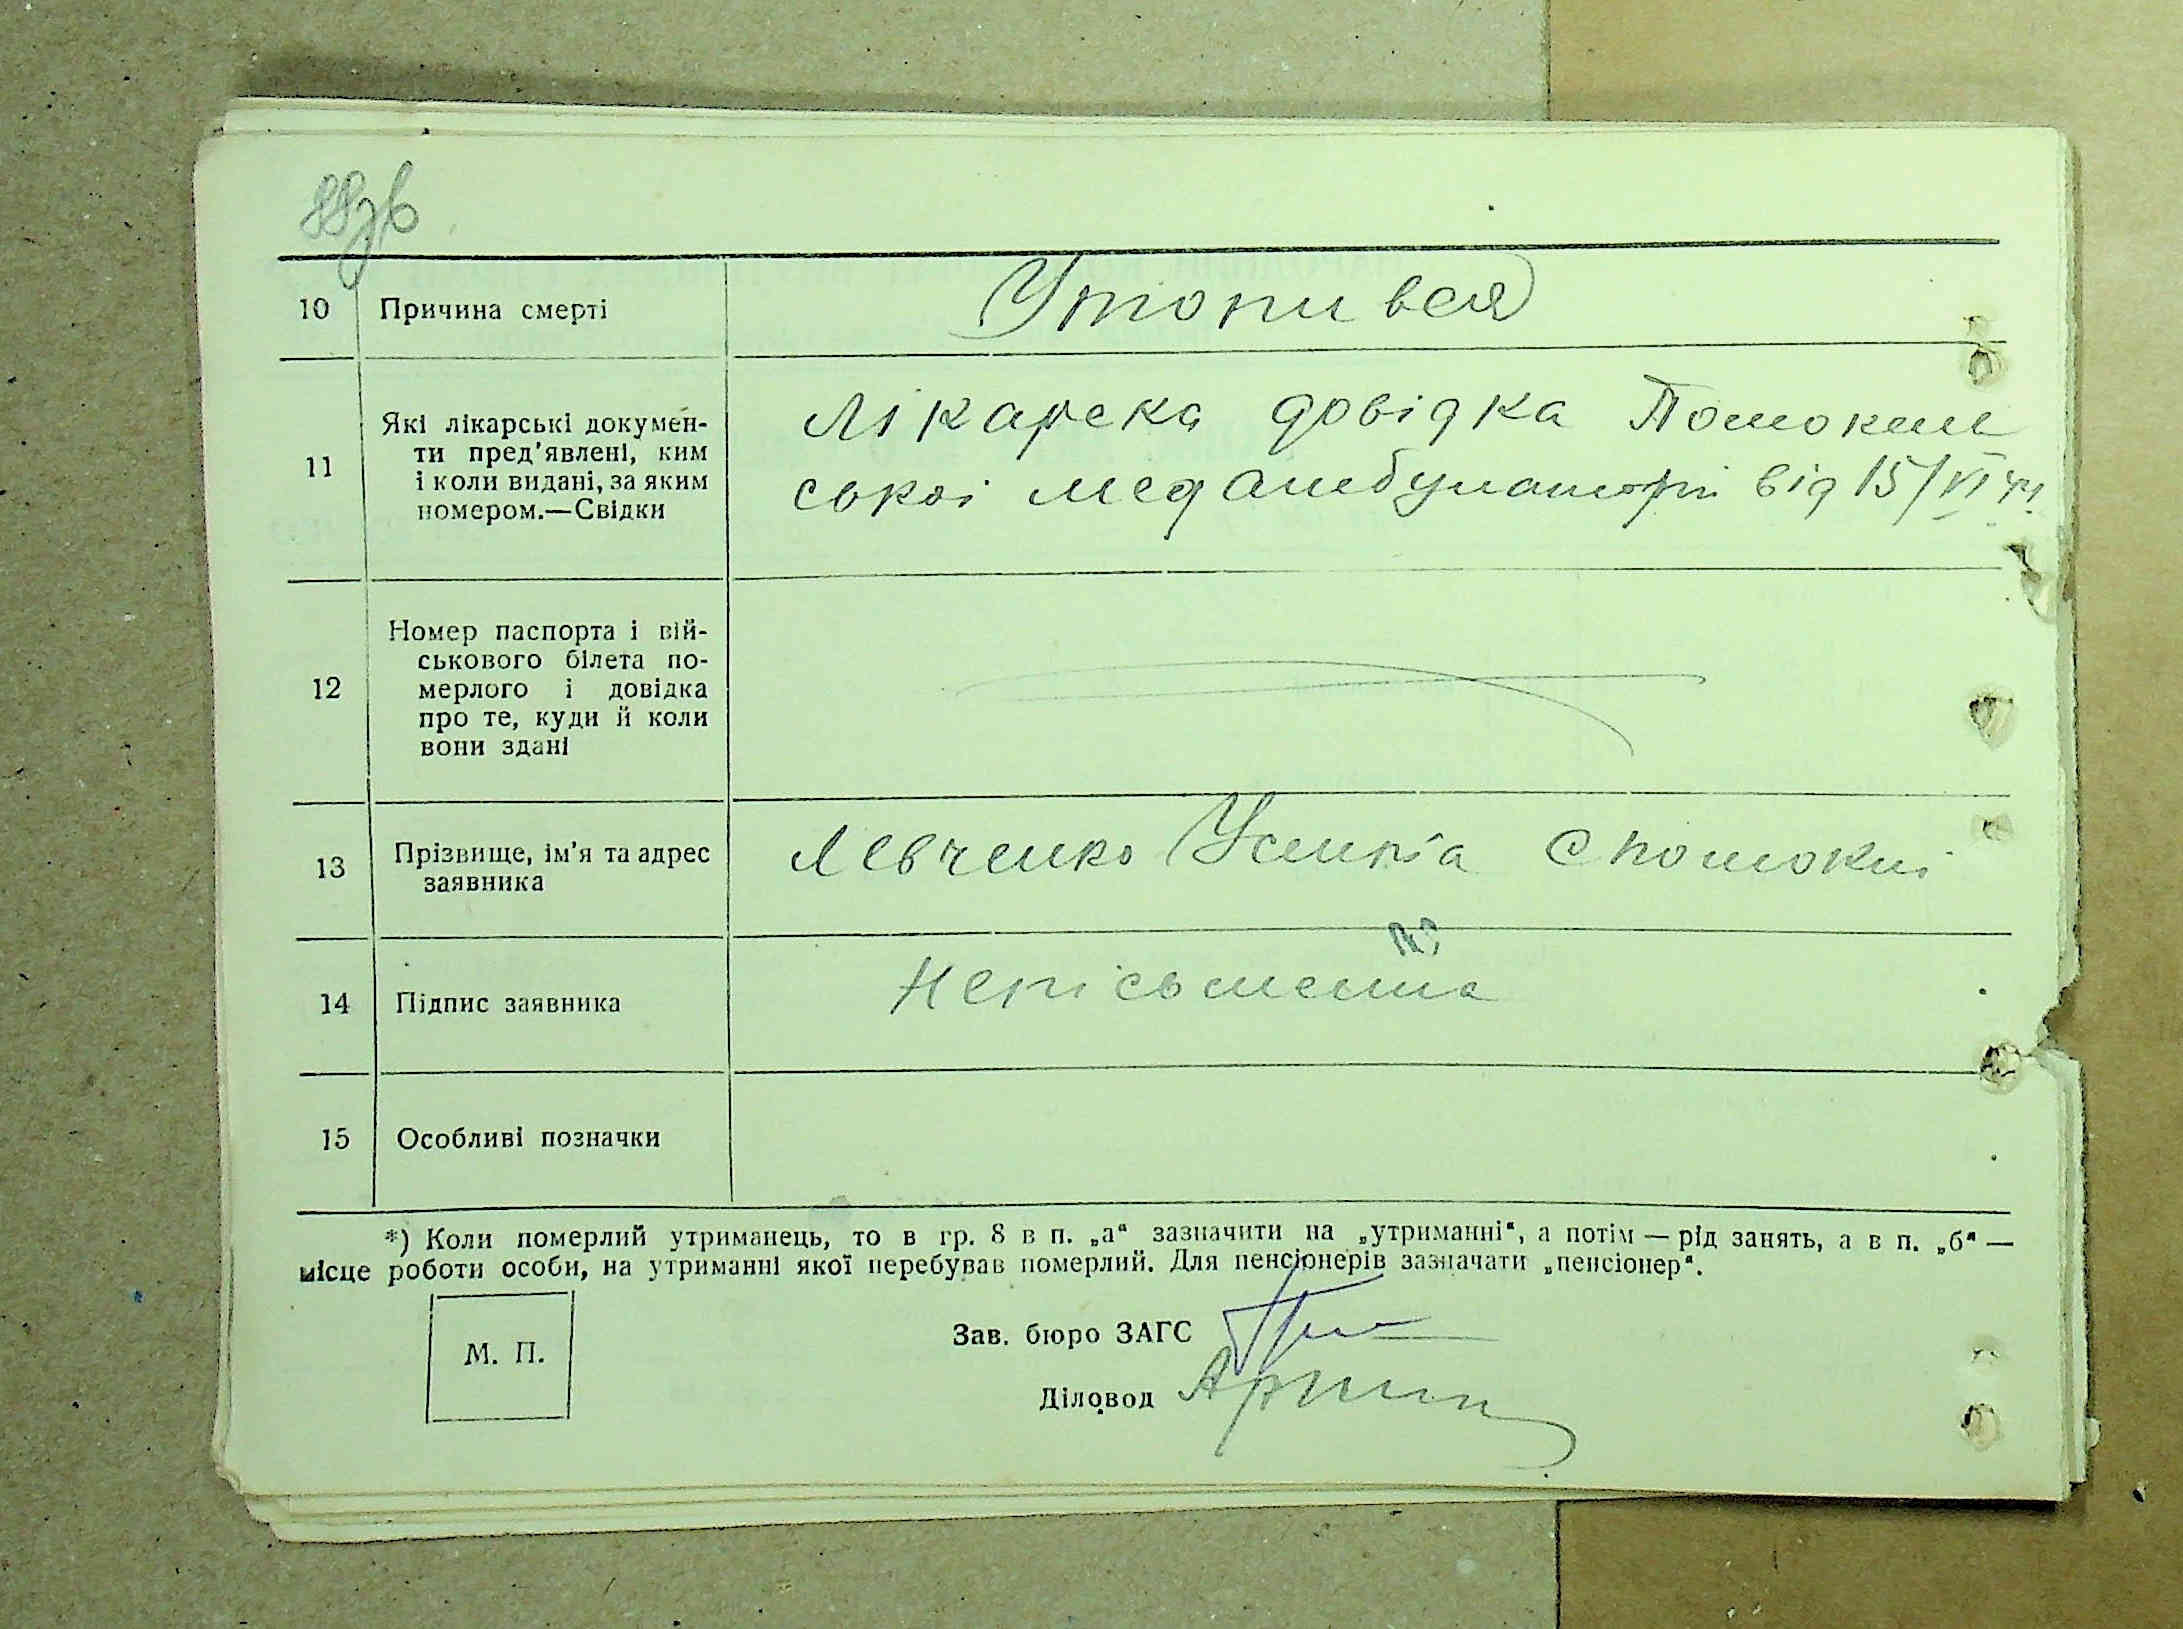 88зв
10 Причина смерті Утопився
11 Які лікарські докумен-
ти пред'явлені, ким
і коли видані, за яким
номером.—Свідки
Лікарска довідка Потокин
ської мед амбулаторії від 15/VI 41
12 Номер паспорта і вій-
ськового білета по-
мерлого і довідка
про те, куди й коли
вони здані
13 Прізвище, ім'я та адрес
заявника
Левченко с Потоки
14 Підпис заявника Неписьменна
15 Особливі позначки
*) Коли померлий утриманець, то в гр. 8 в п. „а“ зазначити на „утриманні“, а потім — рід занять, а в п. „б“ —
місце роботи особи, на утриманні якої перебував померлий. Для пенсіонерів зазначати „пенсіонер“.
М. П.
Зав. бюро ЗАГС
Діловод